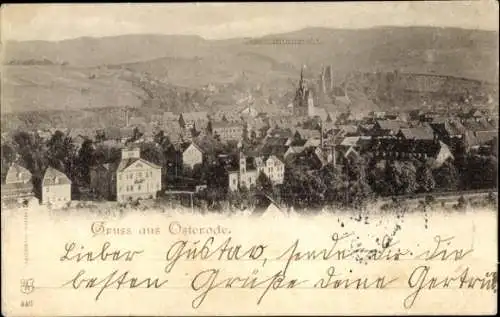 Gruss aus Osterode.
Lieber Gustav, sende dir die
besten Grüße deine Gertrud